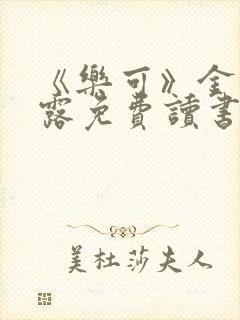 《樂可》金
露免費讀書
美杜莎夫人